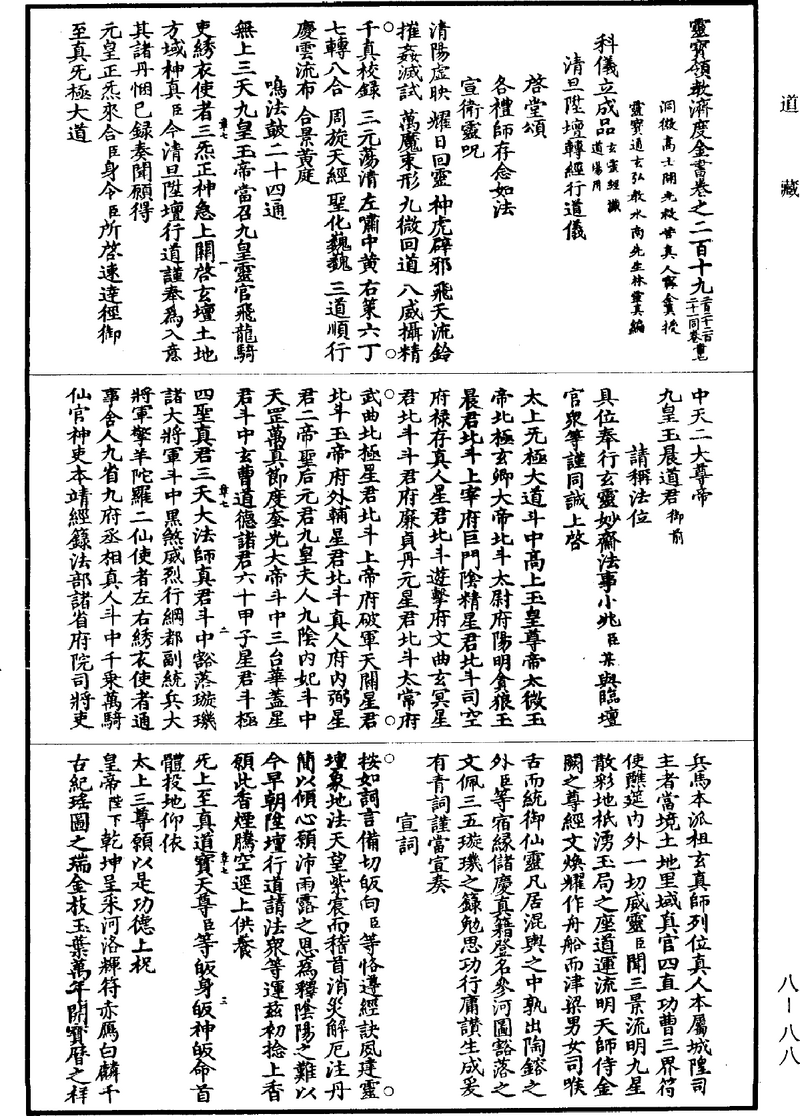 道藏
靈寶領教濟度金書卷之二百十九
洞微高士開光救苦真人甯全真授
靈寶通玄弘教水南先生林靈真編
科儀立成品玄靈經懺道場用
清旦陞壇轉經行道儀
啓堂頌
各禮師存念如法
宣衛靈呪
清陽虛映 耀日回靈 神虎辟邪 飛天流鈴
摧姦滅試 萬魔束形 九微回道 八威攝精
千真校錄 三元蕩清 左嘯中黃 右策六丁
七轉八合 周旋天經 聖化巍巍 三道順行
慶雲流布 合景黃庭
鳴法鼓二十四通
無上三天九皇玉帝當召九皇靈官飛龍騎
吏綉衣使者三炁正神急上關啓玄壇土地
方域神真臣今清旦陞壇行道謹奉爲入意
其諸丹悃已錄奏聞願得
元皇正炁來合臣身令臣所啓速達徑御
至真无極大道
中天二大尊帝
九皇玉晨道君御前
請稱法位
具位奉行玄靈妙齋法事小兆臣某與臨壇
官衆等謹同誠上啓
太上无極大道斗中高上玉皇尊帝太微玉
帝北極玄卿大帝北斗太尉府陽明貪狼玉
晨君北斗上宰府巨門陰精星君北斗司空
府祿存真人星君北斗遊擊府文曲玄冥星
君北斗斗君府廉貞丹元星君北斗太常府
武曲北極星君北斗上帝府破軍天關星君
北斗玉帝府外輔星君北斗真人府內弼星
君二帝聖后元君九皇夫人九陰內妃斗中
天罡萬真節度奎光大帝斗中三台華蓋星
君斗中玄曹道德諸君六十甲子星君斗極
四聖真君三天大法師真君斗中豁落璇璣
諸大將軍斗中黑煞威烈行綱都副統兵大
將軍擎羊陀羅二仙使者左右綉衣使者通
事舍人九省九府丞相真人斗中千乘萬騎
仙官神吏本靖經籙法部諸省府院司將吏
兵馬本派祖玄真師列位真人本屬城隍司
主者當境土地里域真官四直功曹三界符
使醮筵內外一切威靈臣聞三景流明九星
散彩地祇湧玉局之座道運流明天師侍金
闕之尊經文煥耀作舟船而津梁男女司喉
舌而統御仙靈凡居混輿之中孰出陶鎔之
外臣等宿緣儲慶真籍登名參河圖豁落之
文佩三五璇璣之籙勉思功行庸讚生成爰
有青詞謹當宣奏
宣詞
按如詞言備切皈向臣等恪遵經訣夙建靈
壇象地法天望紫宸而稽首消災解厄注丹
簡以傾心願沛雨露之恩爲釋陰陽之難以
今早朝陞壇行道請法衆等運茲初捻上香
願此香煙騰空逕上供養
无上至真道寶天尊臣等皈身皈神皈命首
體投地仰依
太上三尊願以是功德上祝
皇帝陛下乾坤呈采河洛輝符赤鴈白麟千
古紀瑤圖之瑞金枝玉葉萬年開寶曆之祥
八－八八